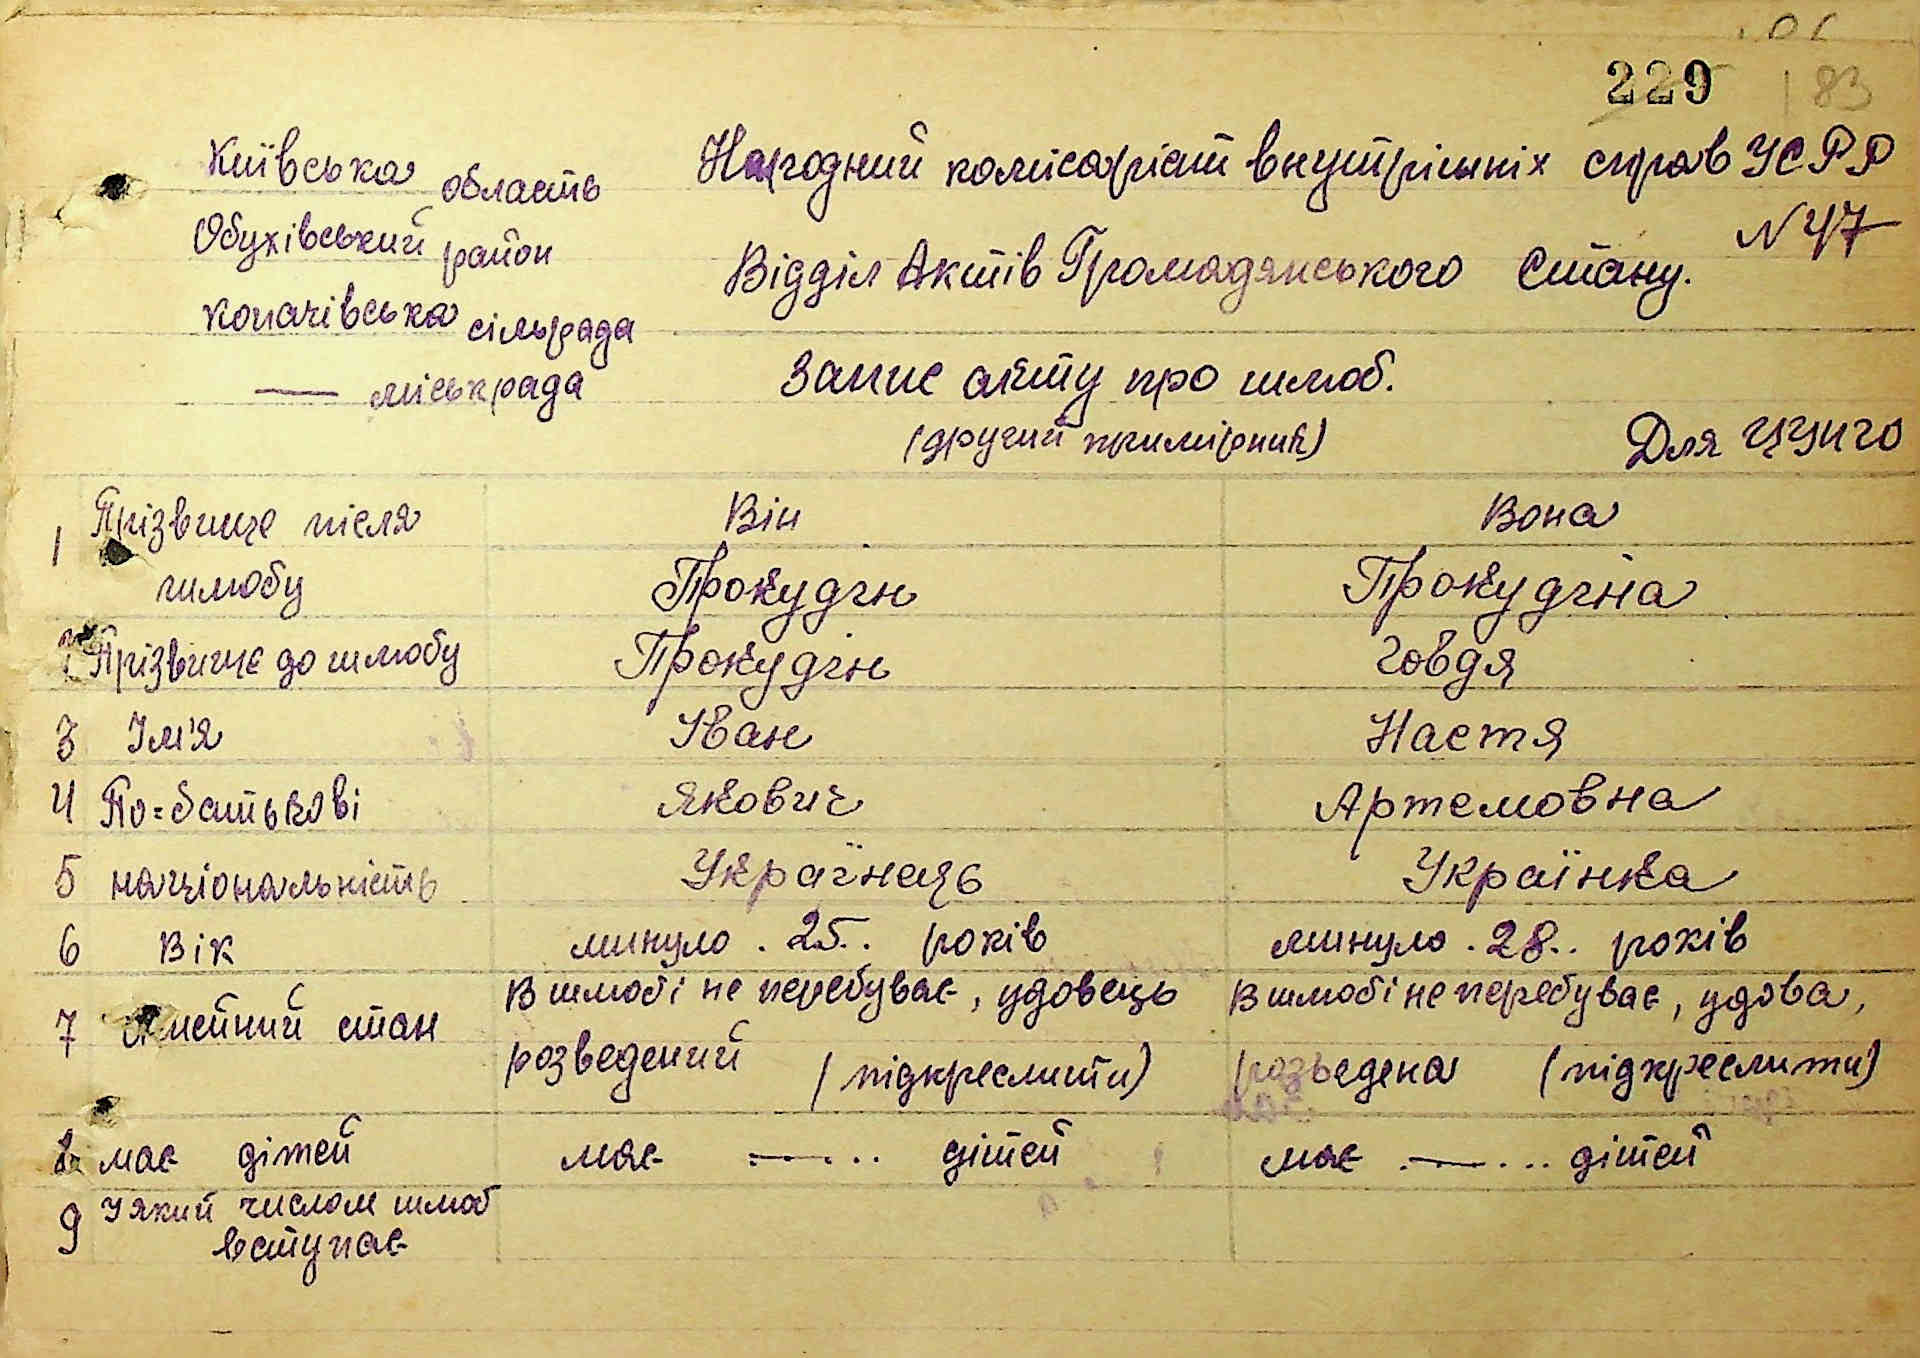 229
83
Київська область
Обухівський район
Копачівська сільрада
— міськрада
Народний комісаріат внутрішніх справ УСРР
N 47
Відділ Актів Громадянського Стану.
Запис акту про шлюб.
(другий примірник)
Для ЦУНГО
1 Прізвище після шлюбу
Він
Вона
Прокудін
Прокудіна
Прізвище до шлюбу
Прокудін
Говдя
3 Ім'я
Іван
Настя
4 По=батькові
Якович
Артемовна
5 національність
Українець
Українка
6 Вік
минуло . 25.. років
минуло . 28.. років
7 сімейний стан
В шлюбі не перебуває, удовець
розведений (підкреслити)
В шлюбі не перебуває, удова,
розведена (підкреслити)
8 має дітей
має —... дітей
має . —... дітей
9 У який числом шлюб
вступає